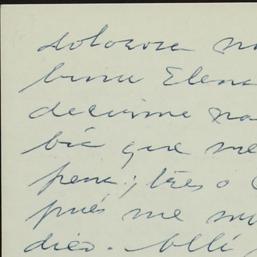 dolorosa no
Elena
decirme na
bía que me
pena; tres o
pués me mu
dios. Allí